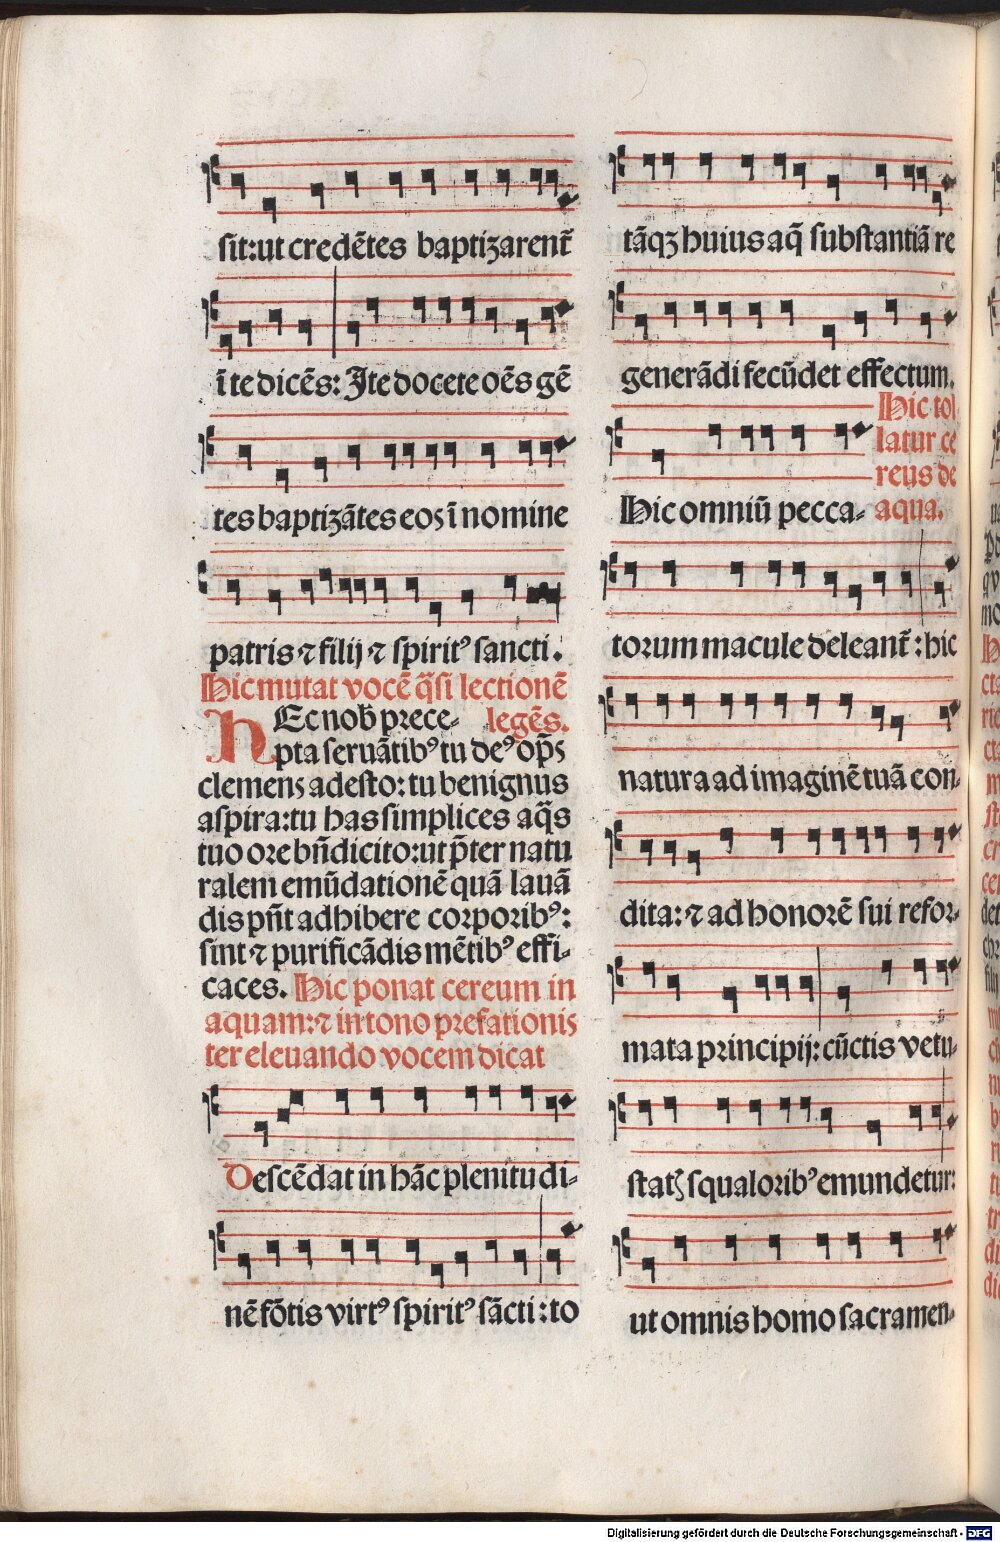 sit:ut credētes baptizarent̄
ī te dicēs: Ite docete oēs gē
tes baptizātes eos ī nomine
patris ⁊ filij ⁊ spiritꝰ sancti.
Hic mutat vocē q̄si lectionē
legēs.
HEc nob̄ prece-
pta seruātibꝰ tu deꝰ op̄s
clemens adesto: tu benignus
aspira: tu has simplices aq̄s
tuo ore bn̄dicito: ut p̄ter natu
ralem emūdationē quā lauā
dis pn̄t adhibere corporibꝰ:
sint ⁊ purificādis mētibꝰ effi-
caces. Hic ponat cereum in
aquam: ⁊ in tono prefationis
ter eleuando vocem dicat
Descēdat in hāc plenitudi-
nē fōtis virtꝰ spiritꝰ sācti: to
tāqꝫ huius aq̄ substantiā re
generādi fecūdet effectum.
Hic tol
latur ce
reus de
aqua.
Hic omniū pecca-
torum macule deleant̄: hic
natura ad imaginē tuā con-
dita: ⁊ ad honorē sui refor-
mata principij: cūctis vetu-
statꝭ squaloribꝰ emundetur:
ut omnis homo sacramen-
Digitalisierung gefördert durch die Deutsche Forschungsgemeinschaft - DFG